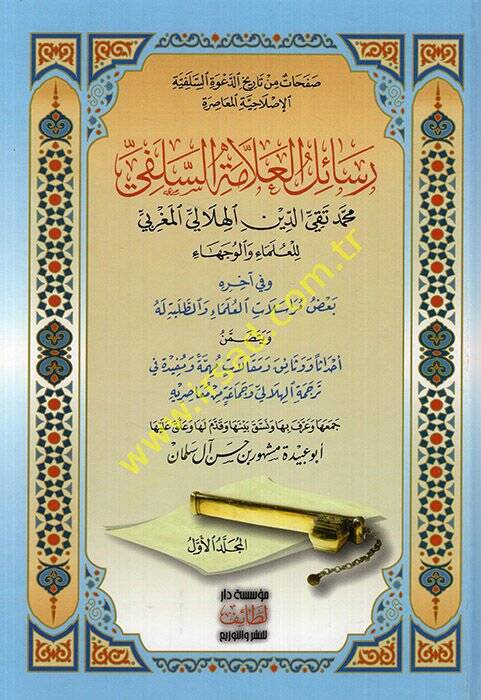 صَفَحَاتٌ مِنْ تَارِيخِ الدَّعْوَةِ السَّلَفِيَّةِ
الإِصْلَاحِيَّةِ المُعَاصِرَةِ
رَسَائِلُ العَلَّامَةِ السَّلَفِيِّ
مُحَمَّد تَقِيِّ الدِّينِ الهِلَالِيِّ المَغْرِبِيِّ
لِلْعُلَمَاءِ وَالوُجَهَاءِ
وَفِي آخِرِهِ
بَعْضُ مُرَاسَلَاتِ العُلَمَاءِ وَالطَّلَبَةِ لَهُ
وَيَتَضَمَّنُ
أَحْدَاثاً وَوَثَائِقَ وَمَقَالَاتٍ مُهِمَّةً وَمُفِيدَةً فِي
تَرْجَمَةِ الهِلَالِيِّ وَجَمَاعَةٍ مِنْ مُعَاصِرِيهِ
جَمَعَهَا وَعَرَّفَ بِهَا وَنَسَّقَ بَيْنَهَا وَقَدَّمَ لَهَا وَعَلَّقَ عَلَيْهَا
أَبُو عُبَيْدَةَ مَشْهُور بْن حَسَن آل سَلْمَان
www.irsad.com.tr
المُجَلَّدُ الأَوَّلُ
مؤسسة دار
لطائف
للنشر والتوزيع